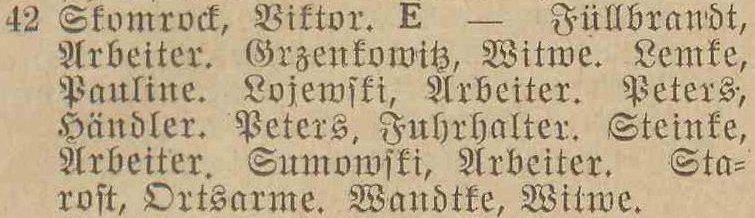 42 Skomrock, Viktor. E — Füllbrandt,
Arbeiter. Grzenkowitz, Witwe. Lemke,
Pauline. Lojewſki, Arbeiter. Peters,
Händler. Peters, Fuhrhalter. Steinke,
Arbeiter. Sumowſki, Arbeiter. Sta⸗
roſt, Ortsarme. Wandtke, Witwe.